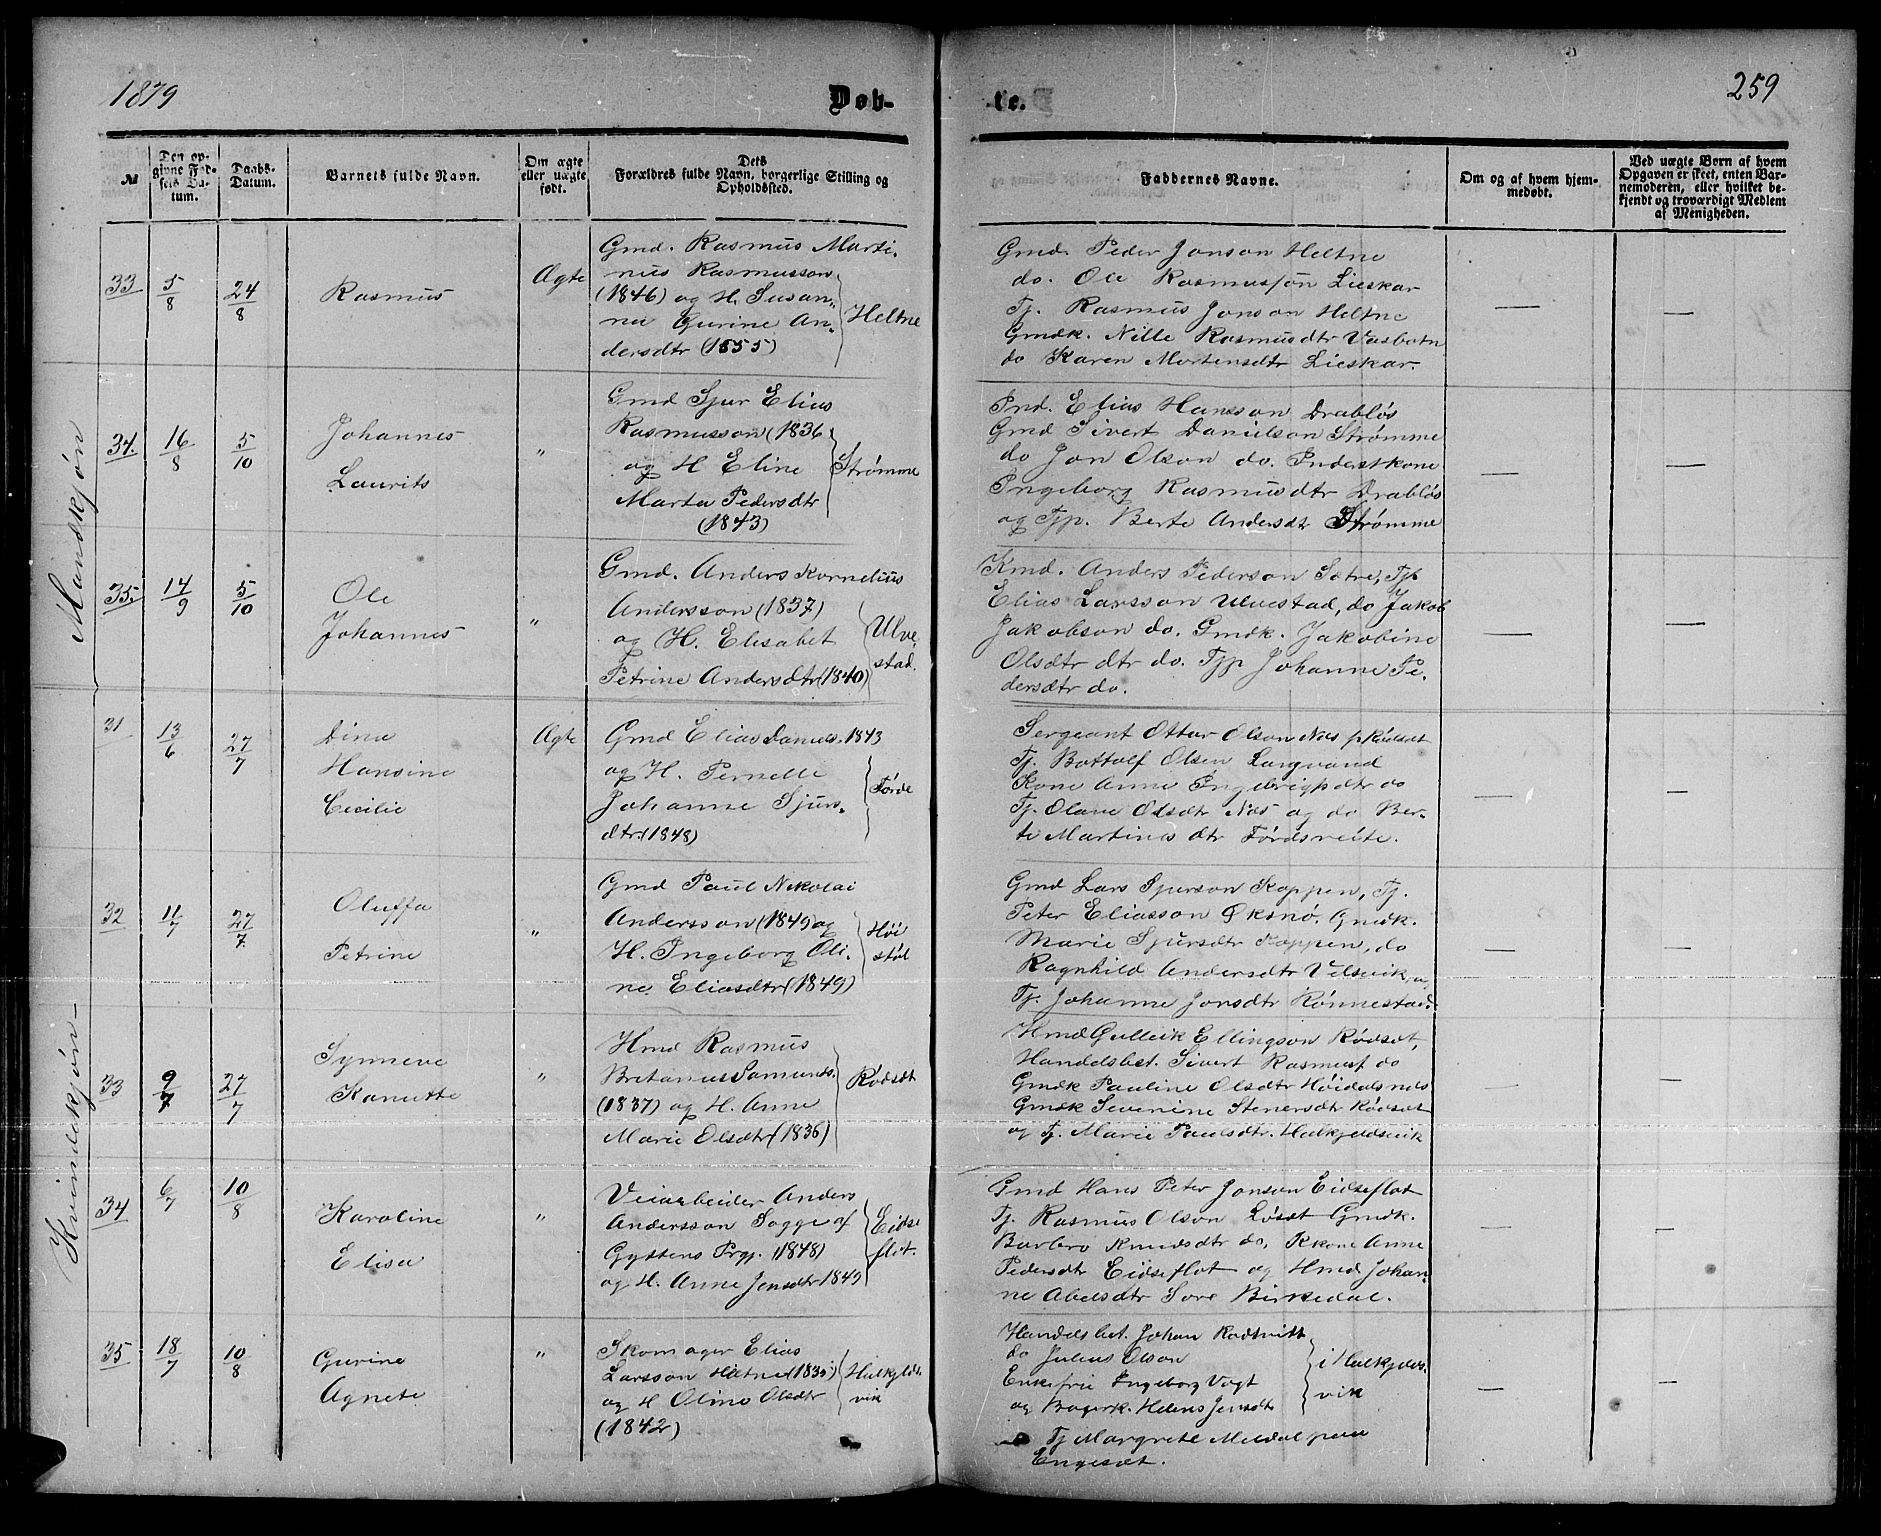 1879
Døb-
te.
259
№
Den op-
givne Fød-
sels Da-
tum.
Daabs-
Datum.
Barnets fulde Navn.
Om ægte
eller uægte
født.
Dets
Forældres fulde Navn, borgerlige Stilling og
Opholdssted.
Faddernes Navne.
Om og af hvem hjem-
medøbt.
Ved uægte Børn af hvem
Opgaven er skeet, enten Bar-
nemoderen, eller hvilket be-
kjendt og troværdigt Medlem
af Menigheden.
Mandskjøn
33
5/8
24/8
Rasmus
Ægte
Gmd. Rasmus Marti-
nus Rasmusson
(1846) og H. Susan-
na Gurine An-
dersdtr (1855)
Heltne
Gmd. Peder Jonson Heltne
do. Ole Rasmusson Lieskar
Tj. Rasmus Jonson Heltne
Gmdk. Nille Rasmusdtr Vasbotn
do Karen Mortensdtr Lieskar.
—
—
34.
16/8
5/10
Johannes
Laurits
"
Gmd Sjur Elias
Rasmusson (1836
og H Eline
Marta Pedersdtr
(1843)
Strømme
Ind. Elias Hansson Drabløs
Gmd Sivert Danielson Strømme
do Jon Olson do. Inderstkone
Ingeborg Rasmusdtr Drabløs
og Tjp. Berte Andersdtr Strømme
—
—
35.
14/9
5/10
Ole
Johannes
"
Gmd. Anders Kornelius
Andersson (1837)
og H. Elisabet
Petrine Andersdtr (1840)
Ulve
stad.
Kmd. Anders Pederson Sætre, Tjp
Elias Larsson Ulvestad, do Jakob
Jakobson do. Gmdk. Jakobine
Olsdtr dtr do. Tjp Johanne Pe-
dersdtr do.
—
—
Kvindekjøn —
31
13/6
27/7
Dina
Hansine
Cecilie
Ægte
Gmd Elias Daniels. 1843
og H. Pernelle
Johanne Sjurs-
dtr. (1848)
Førde
Sergeant Ottar Olson Næs p Rødsæt
Tj. Bottolf Olsen Langvand
Kone Anne Ingebrigtsdtr do
Tj. Olane Olsdtr Næs og do Ber-
te Martines dtr Førdsvelte.
—
—
32
11/7
27/7
Oluffa
Petrine
"
Gmd Paul Nikolai
Andersson (1849) og
H. Ingeborg Oli-
ne Eliasdtr (1849)
Høi
støl
Gmd Lars Sjurson Koppen, Tj.
Peter Eliasson Øksnø. Gmdk.
Marie Sjursdtr Koppen, do
Ragnhild Andersdtr Velsvik, og
Tj. Johanne Jonsdtr Rønnestad.
—
—
33
9/7
27/7
Synneve
Kanutte
"
Hmd Rasmus
Bretanus Samunds.
(1837) og H. Anne
Marie Olsdtr (1836)
Rødsæt
Hmd Gullik Ellingson Rødsæt,
Handelsbet. Sivert Rasmus do
Gmdk Pauline Olsdtr Høidalsnes
Gmdk Severine Stenersdtr Rødsæt
og Tj. Marie Paulsdtr. Halkjeldsvik
—
—
34
6/7
10/8
Karoline
Elisa
"
Veiarbeider Anders
Andersson Sogge af
Gydtens Prgj. (1848)
og H. Anne Jensdtr 1849
Eidse
flot.
Gmd Hans Peter Jonson Eidseflot
Tj. Rasmus Olson Løsæt Gmdk.
Barbro Knudsdtr do, Kkone Anne
Pedersdtr Eidseflot og Hmd Johan-
ne Abelsdtr Søre Birkedal.
—
—
35
18/7
10/8
Gurine
Agnete
"
Skomager Elias
Larsson Hatne (1835)
og H Oline Olsdtr
(1842)
Halkjelds
vik
Handelsbet. Johan
do Julius Olson
Enkefrue Ingeborg Vogt
og Bagerk. Helens Jensdtr
i Halkjelds-
vik
Tj Margrete Meldal paa
Engesæt.
—
—